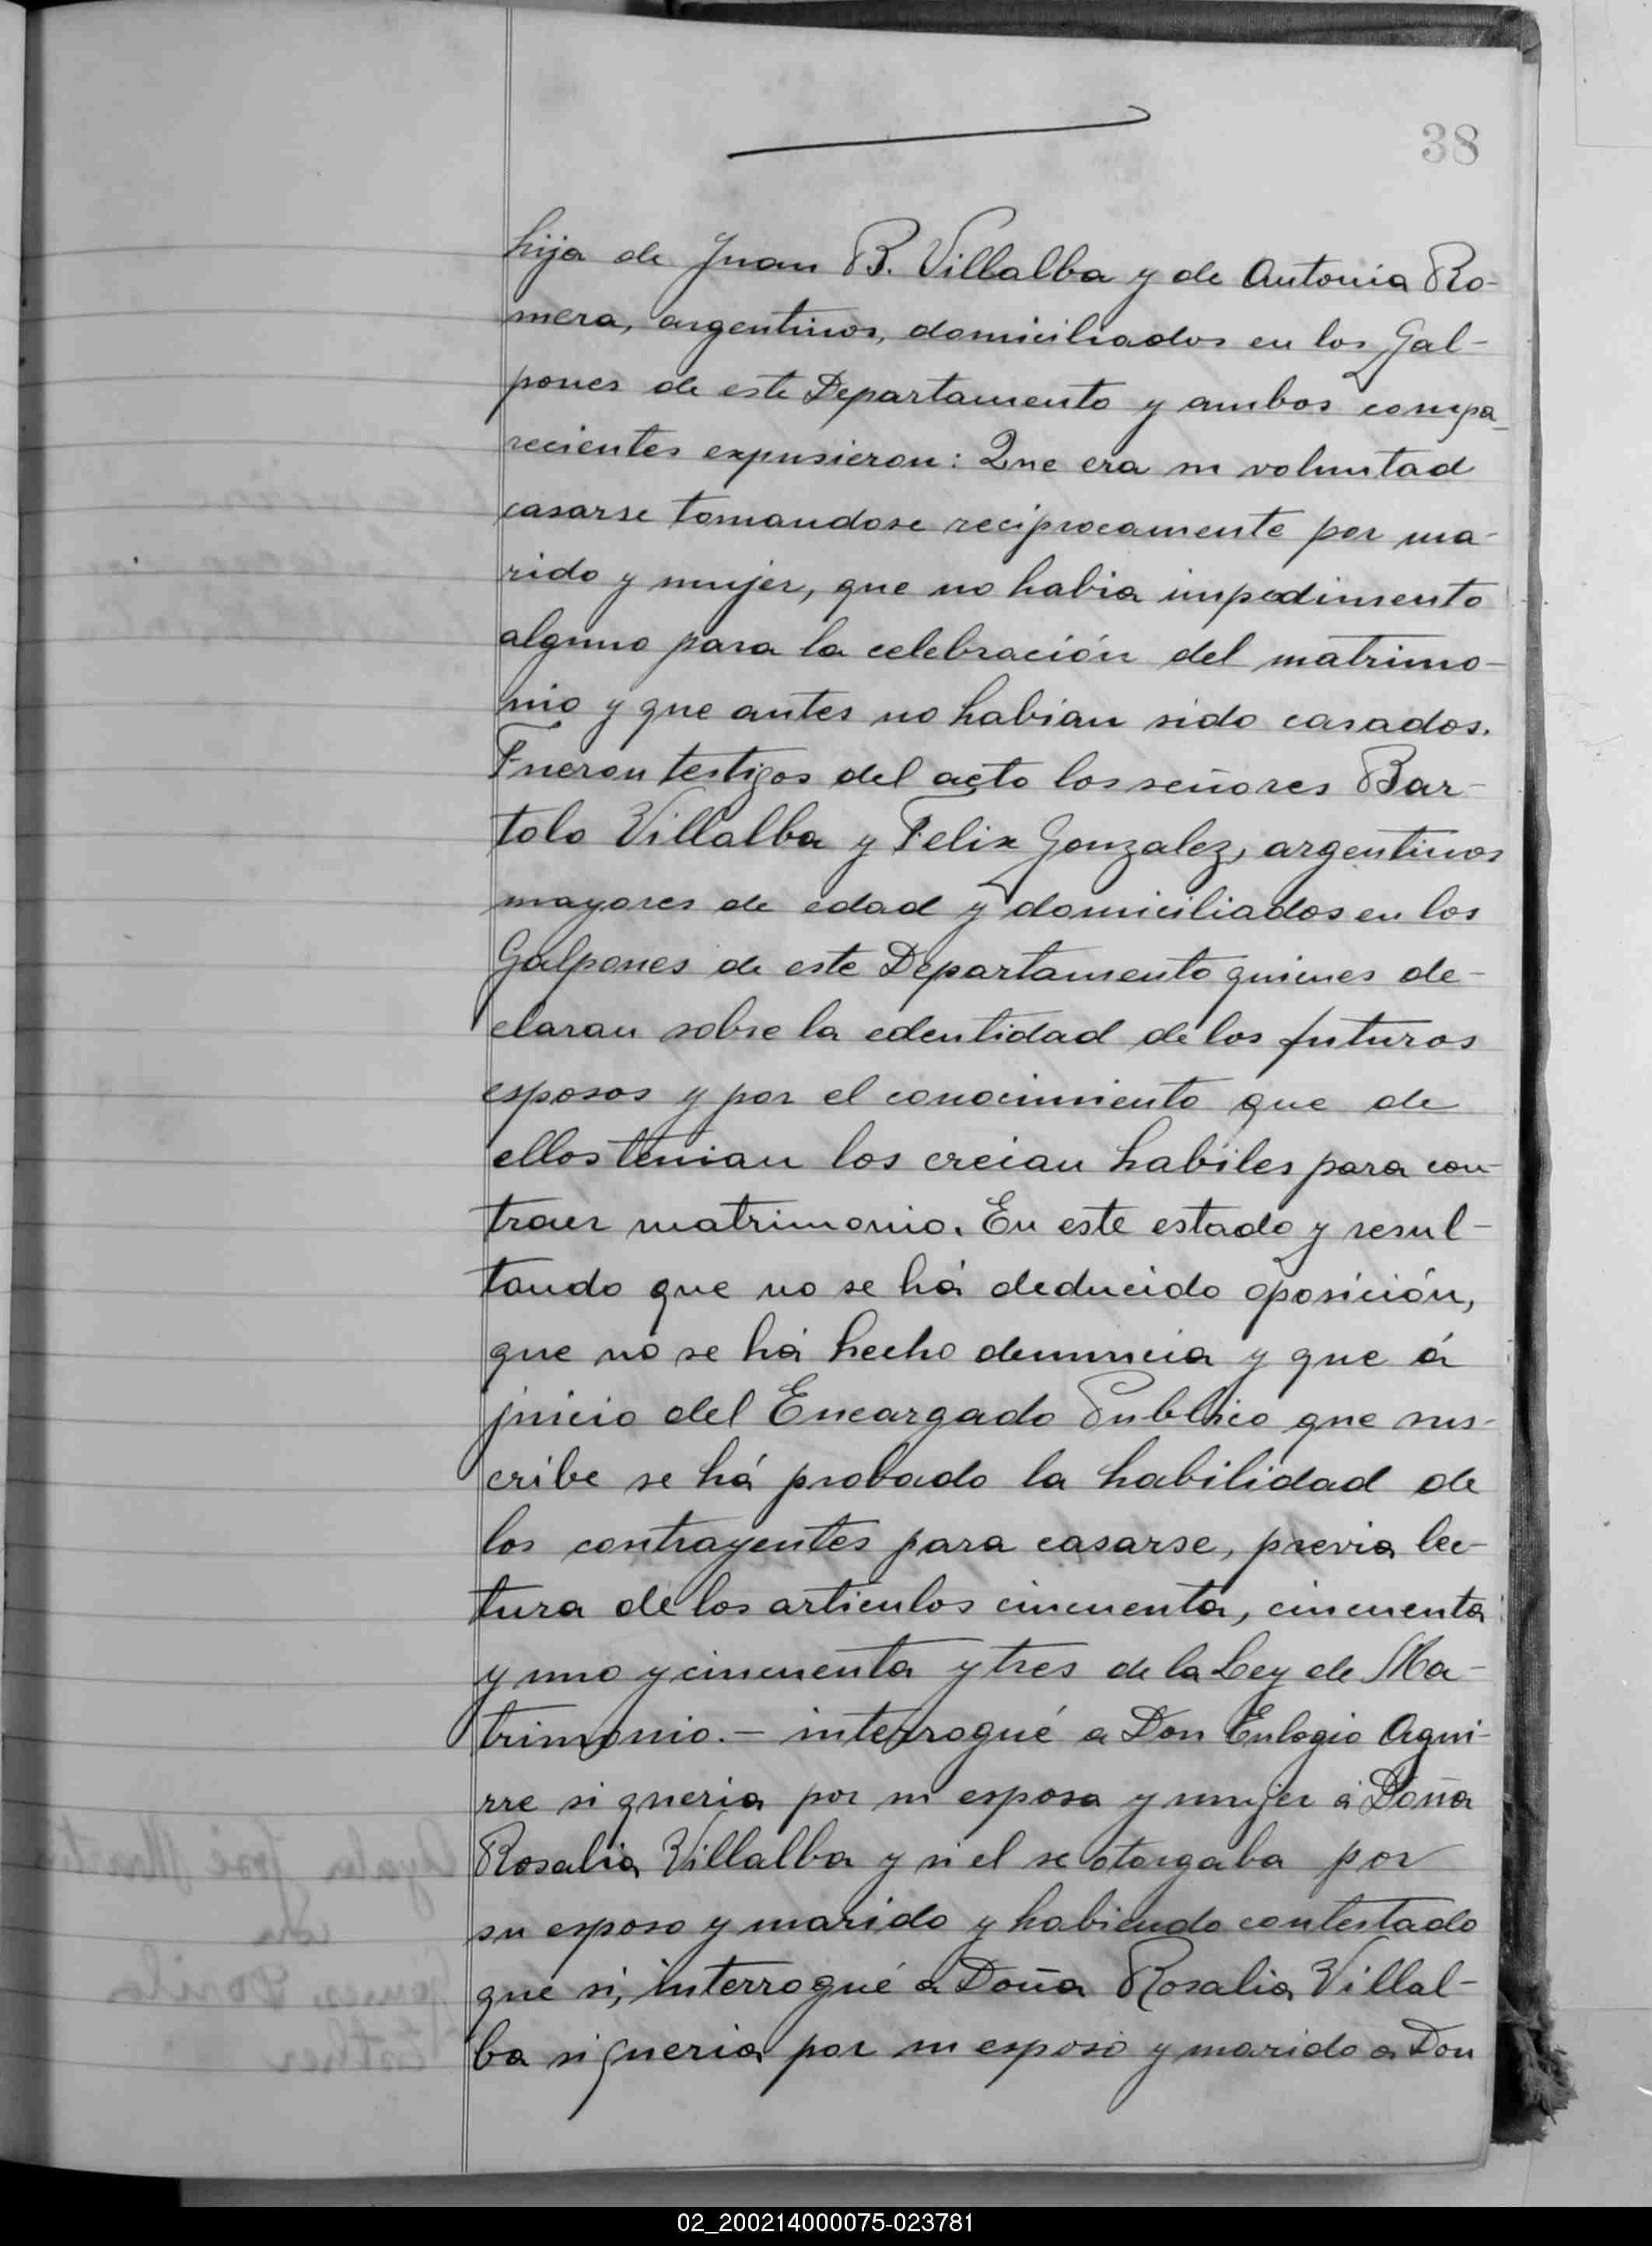 38
hija de Juan B. Villalba y de Antonia Ro-
mera, argentinos, domiciliados en los Gal-
pones de este Departamento y ambos compa-
recientes expusieron: Que era su voluntad
casarse tomandose reciprocamente por ma-
rido y mujer, que no habia impedimento
alguno para la celebración del matrimo-
nio y que antes no habian sido casados.
Fueron testigos del acto los señores Bar-
tolo Villalba y Felix Gonzalez, argentinos
mayores de edad y domiciliados en los
Galpones de este Departamento quienes de-
claran sobre la edentidad de los futuros
esposos y por el conocimiento que de
ellos tenian los creian habiles para con-
traer matrimonio. En este estado y resul-
tando que no se há deducido oposición,
que no se há hecho denuncia y que á
juicio del Encargado Publico que sus-
cribe se há probado la habilidad de
los contrayentes para casarse, previa lec-
tura de los articulos cincuenta, cincuenta
y uno y cincuenta y tres de la Ley de Ma-
trimonio.- interrogué a Don Eulogio Agui-
rre si queria por su esposa y mujer á Doña
Rosalia Villalba y si el se otorgaba por
su esposo y marido y habiendo contestado
que si, interrogué a Doña Rosalia Villal-
ba si queria por su esposo y marido a Don
02_200214000075-023781